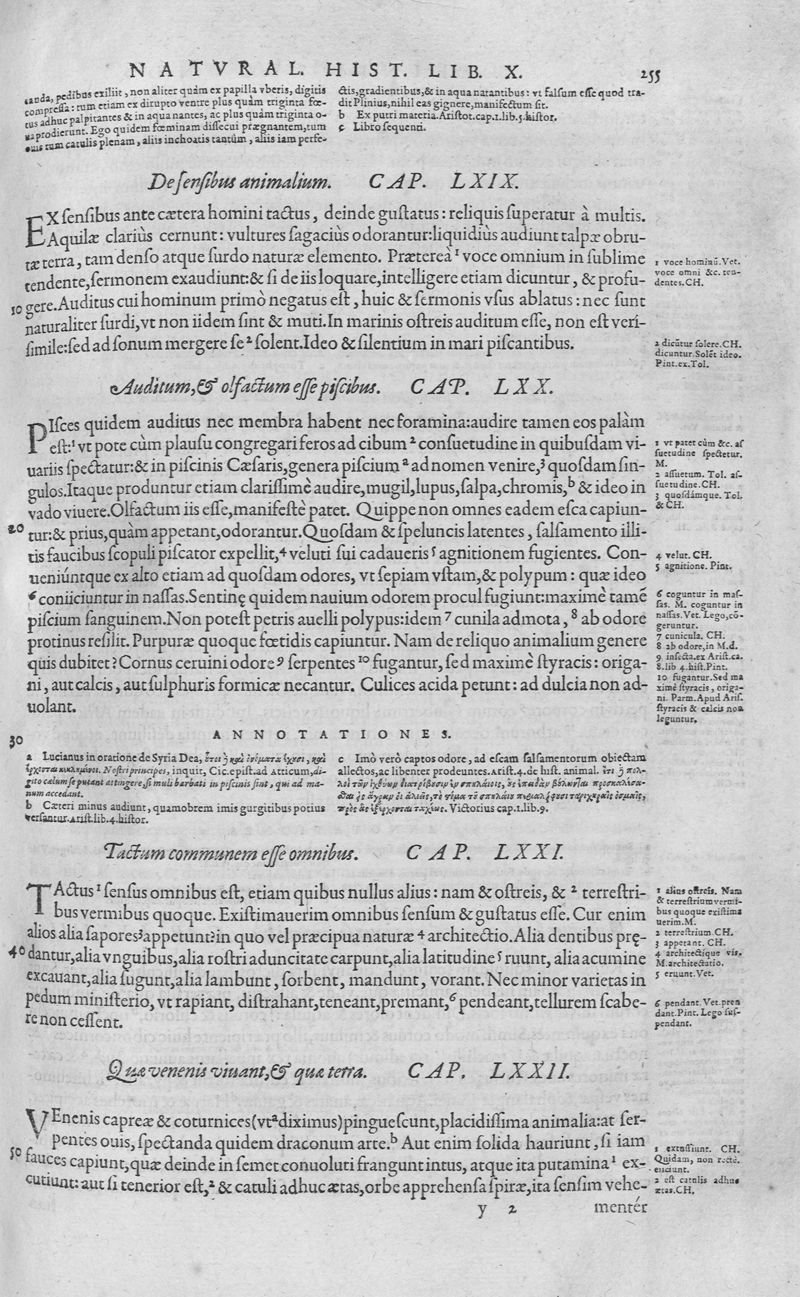 NATVRAL. HIST. LIB. X. 255
tanda, pedibus exiliit, non aliter quàm ex papilla vberis, digitis
compressa: tum etiam ex dirupto ventre plus quàm triginta fœ-
tus adhuc palpitantes & in aqua nantes, ac plus quàm triginta o-
ua prodierunt. Ego quidem fœminam dissecui prægnantem, tum
ouis tum catulis plenam, aliis inchoatis tantùm, aliis iam perfe-
ctis, gradientibus, & in aqua natantibus: vt falsum esse quod tra-
dit Plinius, nihil eas gignere, manifectum sit.
b Ex putri materia. Aristot. cap. 1. lib. 5. histor.
c Libro sequenti.
De sensibus animalium. CAP. LXIX.
EX sensibus ante cætera homini tactus, deinde gustatus: reliquis superatur à multis.
Aquilæ clariùs cernunt: vultures sagaciùs odorantur: liquidiùs audiunt talpæ obru-
tæ terra, tam denso atque surdo naturæ elemento. Præterea¹ voce omnium in sublime
tendente, sermonem exaudiunt: & si de iis loquare, intelligere etiam dicuntur, & profu-
10 gere. Auditus cui hominum primò negatus est, huic & sermonis vsus ablatus: nec sunt
naturaliter surdi, vt non iidem sint & muti. In marinis ostreis auditum esse, non est veri-
simile: sed ad sonum mergere se² solent. Ideo & silentium in mari piscantibus.
1 voce hominũ. Vet.
voce omni &c. ten-
dentes. CH.
2 dicũtur solere. CH.
dicuntur. Solēt ideo.
Pint. ex. Tol.
Auditum, & olfactum esse piscibus. CAP. LXX.
PIsces quidem auditus nec membra habent nec foramina: audire tamen eos palàm
est:¹ vt pote cùm plausu congregari feros ad cibum² consuetudine in quibusdam vi-
uariis spectatur: & in piscinis Cæsaris, genera piscium ᵃ ad nomen venire,³ quosdam sin-
gulos. Itaque produntur etiam clarissimè audire, mugil, lupus, salpa, chromis,ᵇ & ideo in
vado viuere. Olfactum iis esse, manifestè patet. Quippe non omnes eadem esca capiun-
20 tur: & prius, quàm appetant, odorantur. Quosdam & speluncis latentes, salsamento illi-
tis faucibus scopuli piscator expellit,⁴ veluti sui cadaueris⁵ agnitionem fugientes. Con-
ueniúntque ex alto etiam ad quosdam odores, vt sepiam vstam, & polypum: quæ ideo
⁶ coniiciuntur in nassas. Sentinę quidem nauium odorem procul fugiunt: maximè tamē
piscium sanguinem. Non potest petris auelli polypus: idem⁷ cunila admota,⁸ ab odore
protinus resilit. Purpuræ quoque fœtidis capiuntur. Nam de reliquo animalium genere
quis dubitet? Cornus ceruini odore⁹ serpentes¹⁰ fugantur, sed maximè styracis: origa-
ni, aut calcis, aut sulphuris formicæ necantur. Culices acida petunt: ad dulcia non ad-
uolant.
1 vt patet cùm &c. as
suetudine spectetur.
M.
2 assuetum. Tol. as-
suetudine. CH.
3 quosdámque. Tol.
& CH.
4 velut. CH.
5 agnitione. Pint.
6 coguntur in mas-
sas. M. coguntur in
nassas. Vet. Lego, cō-
geruntur.
7 cunicula. CH.
8 ab odore, in M. d.
9 insecta. ex Arist. ca.
8. lib 4. hist. Pint.
10 fugantur. Sed ma
ximè styracis, origa-
ni. Parm. Apud Aris.
styracis & calcis non
leguntur.
30 ANNOTATIONES.
a Lucianus in oratione de Syria Dea,
Nostri principes, inquit, Cic. epist. ad Atticum, di-
gito cælum se putant attingere, si muli barbati in piscinis sint, qui ad ma-
num accedant.
b Cæteri minus audiunt, quamobrem imis gurgitibus potius
versantur. Arist. lib. 4. histor.
c Imò verò captos odore, ad escam salsamentorum obiectam
allectos, ac libenter prodeuntes. Arist. 4. de hist. animal.
Victorius cap. 1. lib. 9.
Tactum communem esse omnibus. CAP. LXXI.
TActus¹ sensus omnibus est, etiam quibus nullus alius: nam & ostreis, & ² terrestri-
bus vermibus quoque. Existimauerim omnibus sensum & gustatus esse. Cur enim
alios alia sapores³ appetunt? in quo vel præcipua naturæ ⁴ architectio. Alia dentibus præ-
40 dantur, alia vnguibus, alia rostri aduncitate carpunt, alia latitudine⁵ ruunt, alia acumine
excauant, alia sugunt, alia lambunt, sorbent, mandunt, vorant. Nec minor varietas in
pedum ministerio, vt rapiant, distrahant, teneant, premant,⁶ pendeant, tellurem scabe-
re non cessent.
1 alius ostreis. Nam
& terrestrium vermi-
bus quoque existima
uerim. M.
2 terrestrium. CH.
3 appetant. CH.
4 architectique vis.
M. architectatio.
5 eruunt. Vet.
6 pendant. Vet. pren
dant. Pint. Lego sus-
pendant.
Quæ venenis viuant, & quæ terra. CAP. LXXII.
VEnenis capreæ & coturnices (vtᵃ diximus) pinguescunt, placidissima animalia: at ser-
pentes ouis, spectanda quidem draconum arte.ᵇ Aut enim solida hauriunt, si iam
50 fauces capiunt, quæ deinde in semet conuoluti frangunt intus, atque ita putamina¹ ex-
cutiunt: aut si tenerior est,² & catuli adhuc ætas, orbe apprehensa spiræ, ita sensim vehe-
1 extussiunt. CH.
Quidam, non rectè.
eiiciunt.
2 est catulis adhuc
ætas. CH.
y 2 menter